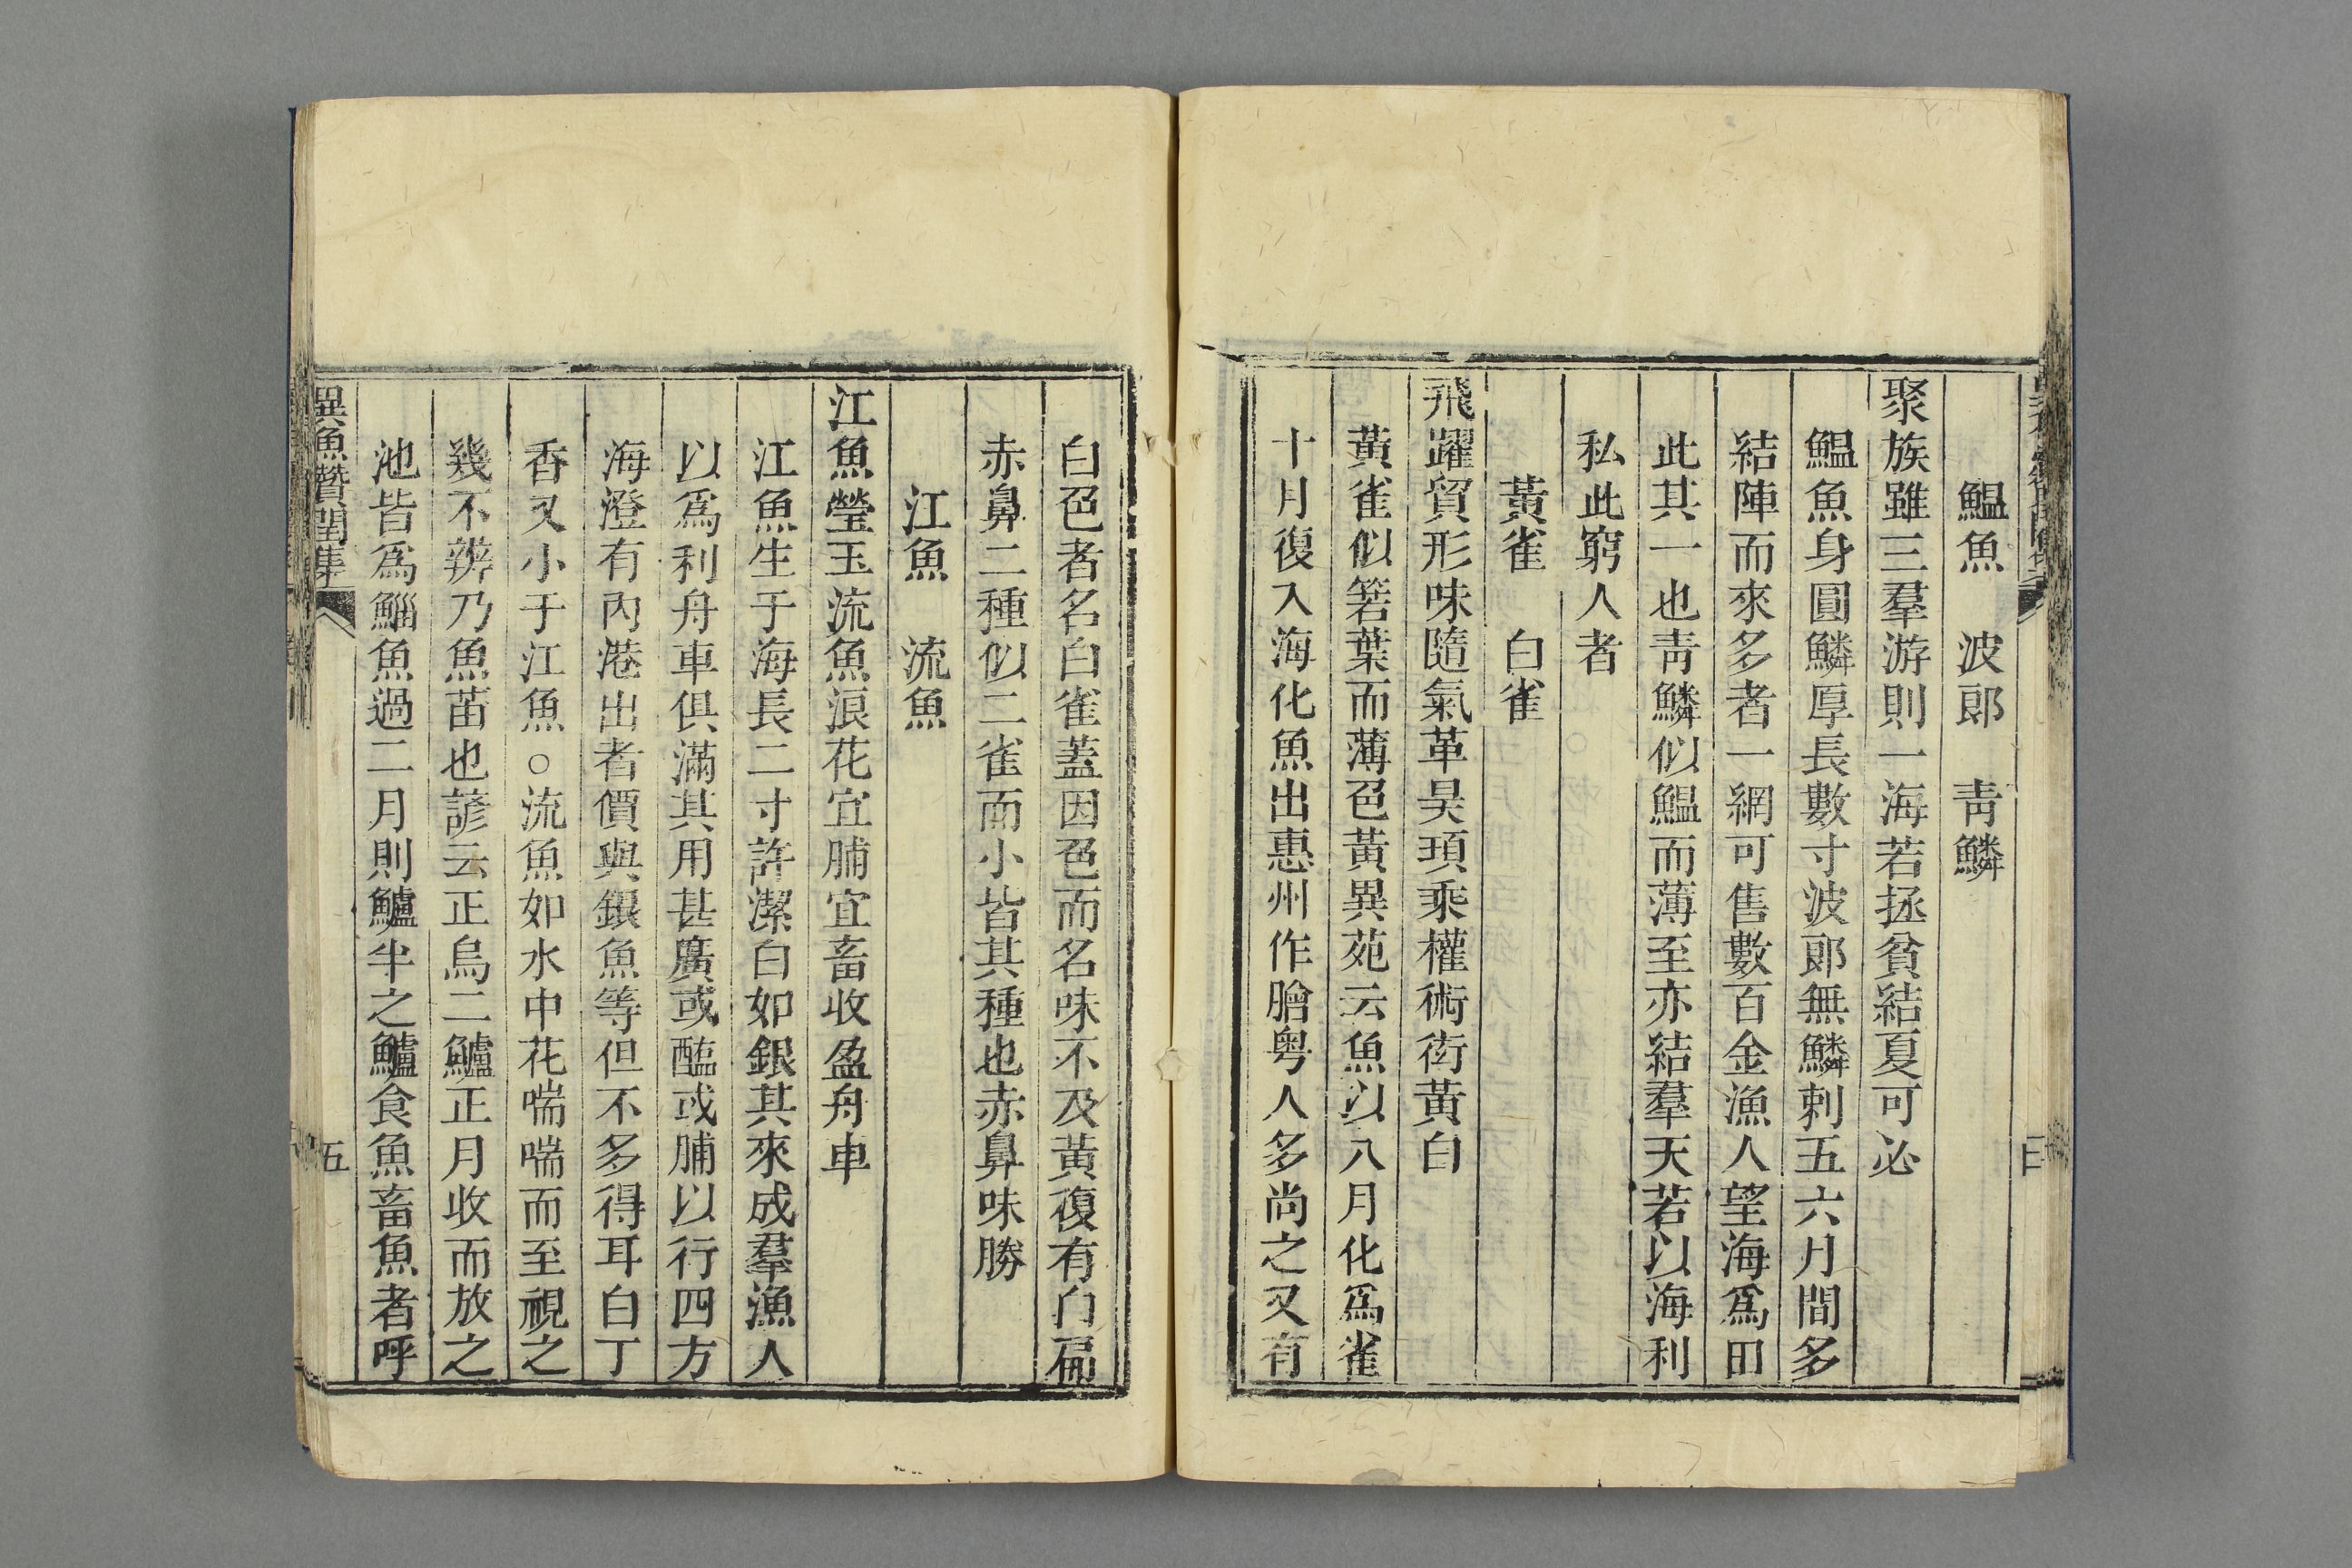 鰛魚　波郎　青鱗
聚族雖三羣游則一海若拯貧結夏可必
鰛魚身圓鱗厚長數寸波郎無鱗刺五六月間多
結陣而來多者一網可售數百金漁人望海爲田
此其一也青鱗似鰛而薄至亦結羣天若以海利
私此窮人者
黃雀　白雀
飛躍貿形味隨氣革昊頊乘權術銜黃白
黃雀似箬葉而薄色黃異苑云魚以八月化爲雀
十月復入海化魚出惠州作膾粤人多尚之又有
白色者名白雀蓋因色而名味不及黃復有门扁
赤鼻二種似二雀而小皆其種也赤鼻味勝
江魚　流魚
江魚瑩玉流魚浪花宜脯宜畜收盈舟車
江魚生于海長二寸許潔白如銀其來成羣漁人
以爲利舟車俱滿其用甚廣或醢或脯以行四方
海澄有內港出者價與銀魚等但不多得耳白丁
香又小于江魚○流魚如水中花喘喘而至視之
幾不辨乃魚苗也諺云正烏二鱸正月收而放之
池皆爲鯔魚過二月則鱸半之鱸食魚畜魚者呼
異魚贊閏集
五